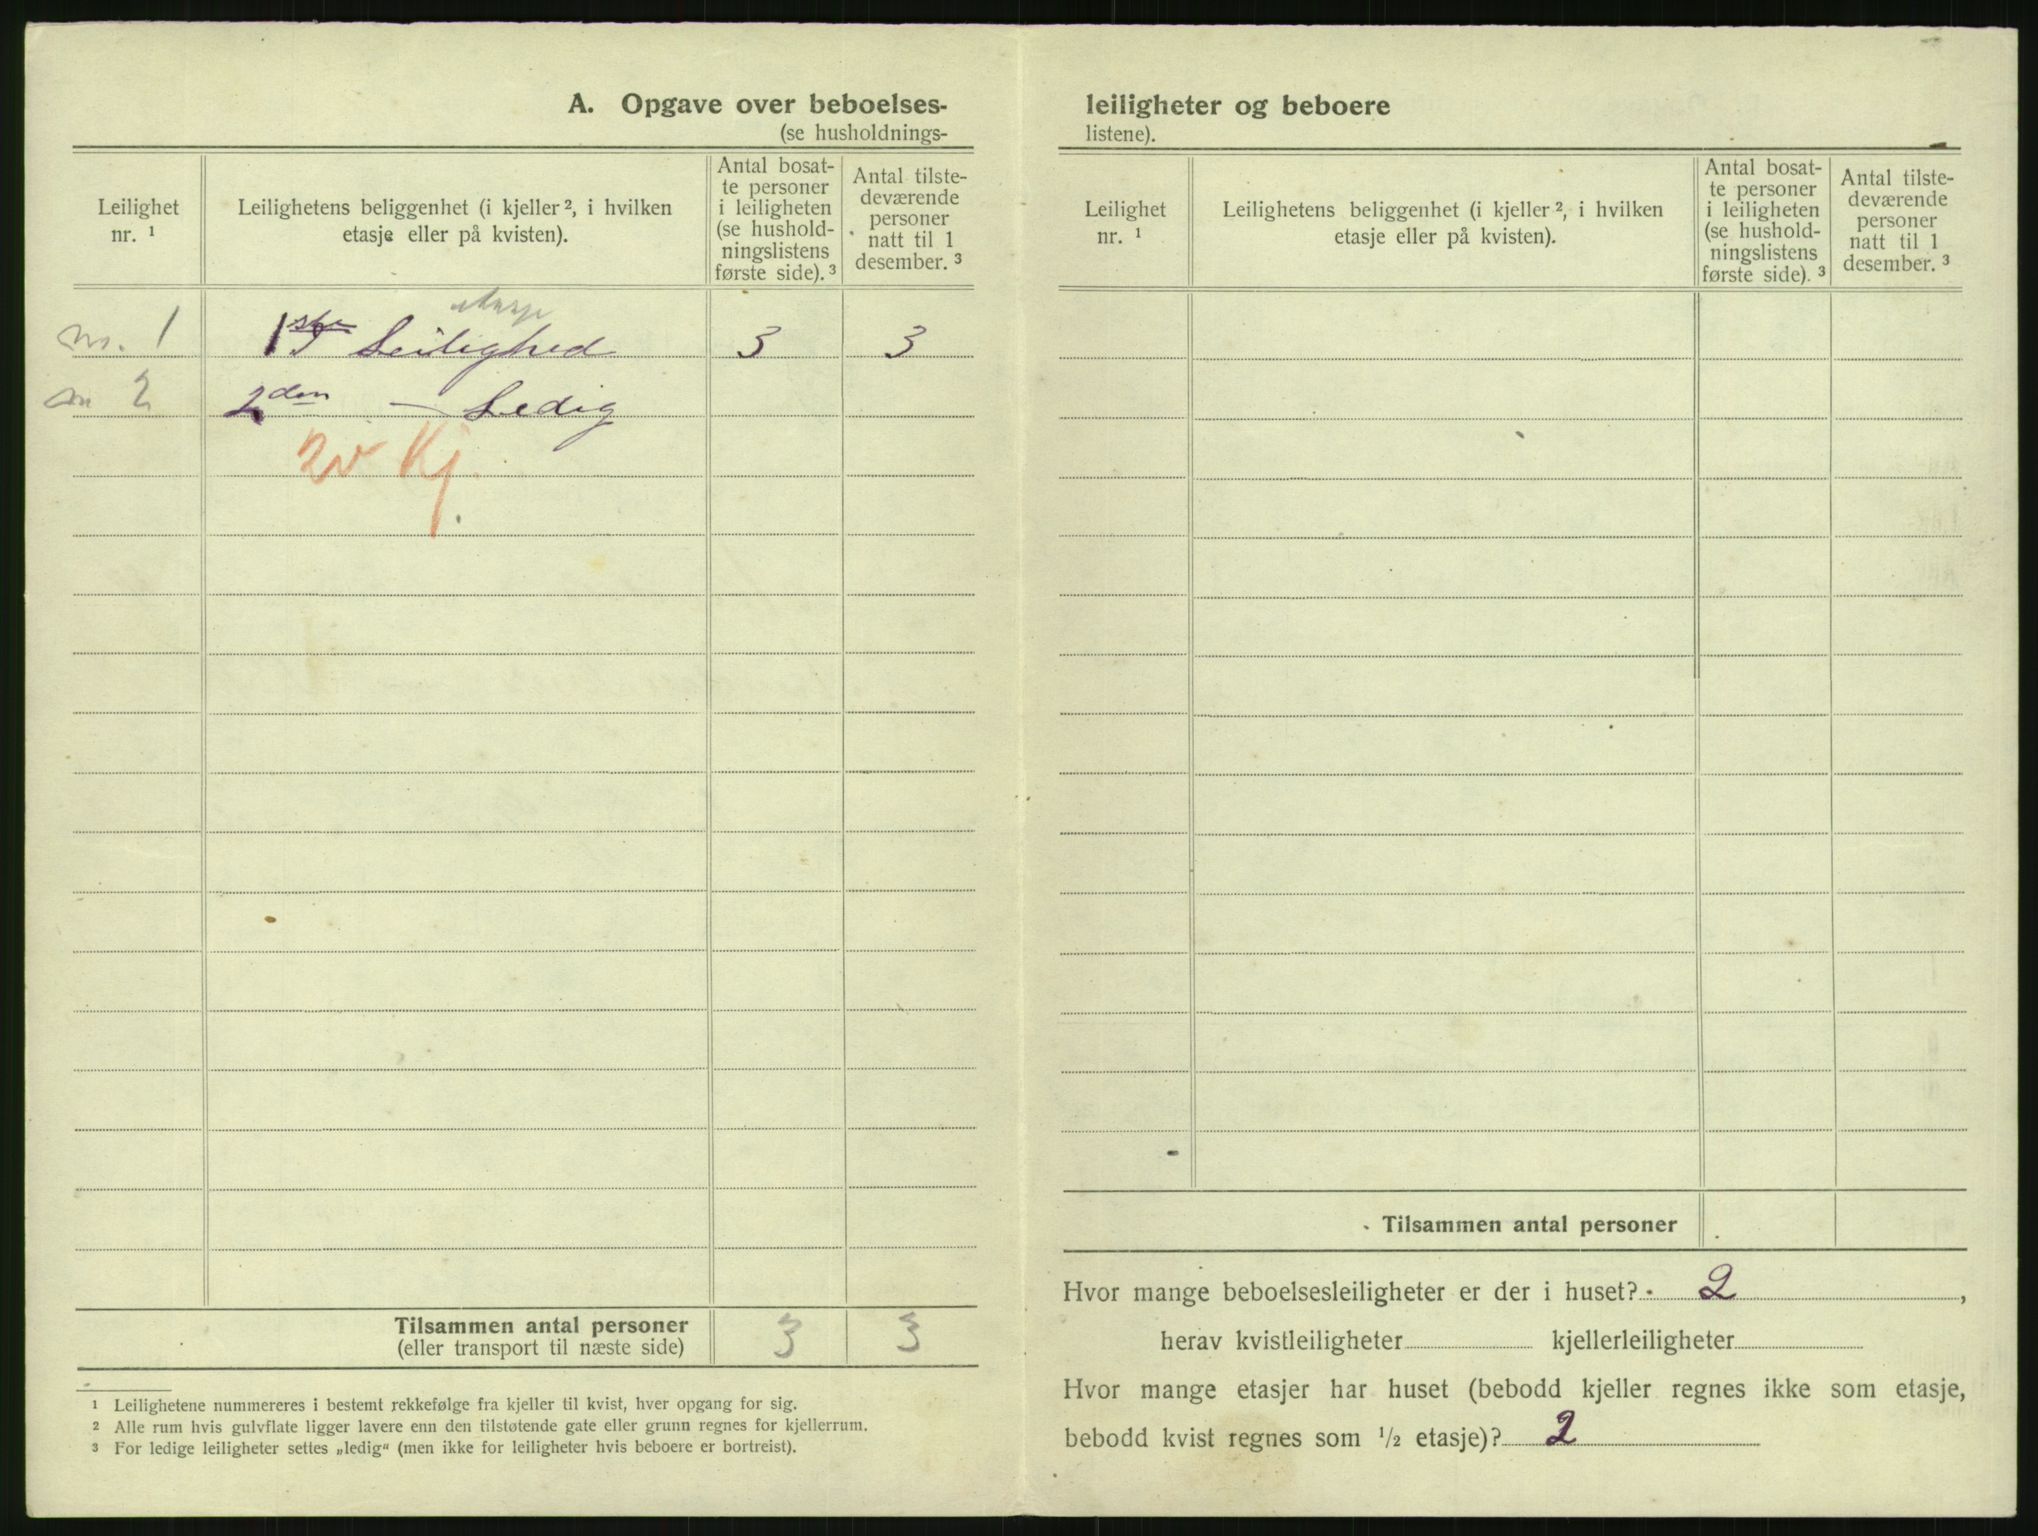 A. Opgave over beboelses-
(se husholdnings-
Leilighet
nr. ¹
Leilighetens beliggenhet (i kjeller ², i hvilken
etasje eller på kvisten).
Antal bosat-
te personer
i leiligheten
(se hushold-
ningslistens
første side). ³
Antal tilste-
deværende
personer
natt til 1
desember. ³
etasje
nr. 1 1ste Leilighed 3 3
nr 2 2den — Ledig
Kj.
Tilsammen antal personer 3 3
(eller transport til næste side)
¹ Leilighetene nummereres i bestemt rekkefølge fra kjeller til kvist, hver opgang for sig.
² Alle rum hvis gulvflate ligger lavere enn den tilstøtende gate eller grunn regnes for kjellerrum.
³ For ledige leiligheter settes „ledig“ (men ikke for leiligheter hvis beboere er bortreist).
leiligheter og beboere
listene).
Leilighet
nr. ¹
Leilighetens beliggenhet (i kjeller ², i hvilken
etasje eller på kvisten).
Antal bosat-
te personer
i leiligheten
(se hushold-
ningslistens
første side). ³
Antal tilste-
deværende
personer
natt til 1
desember. ³
Tilsammen antal personer
Hvor mange beboelsesleiligheter er der i huset? 2,
herav kvistleiligheter kjellerleiligheter
Hvor mange etasjer har huset (bebodd kjeller regnes ikke som etasje,
bebodd kvist regnes som ½ etasje)? 2